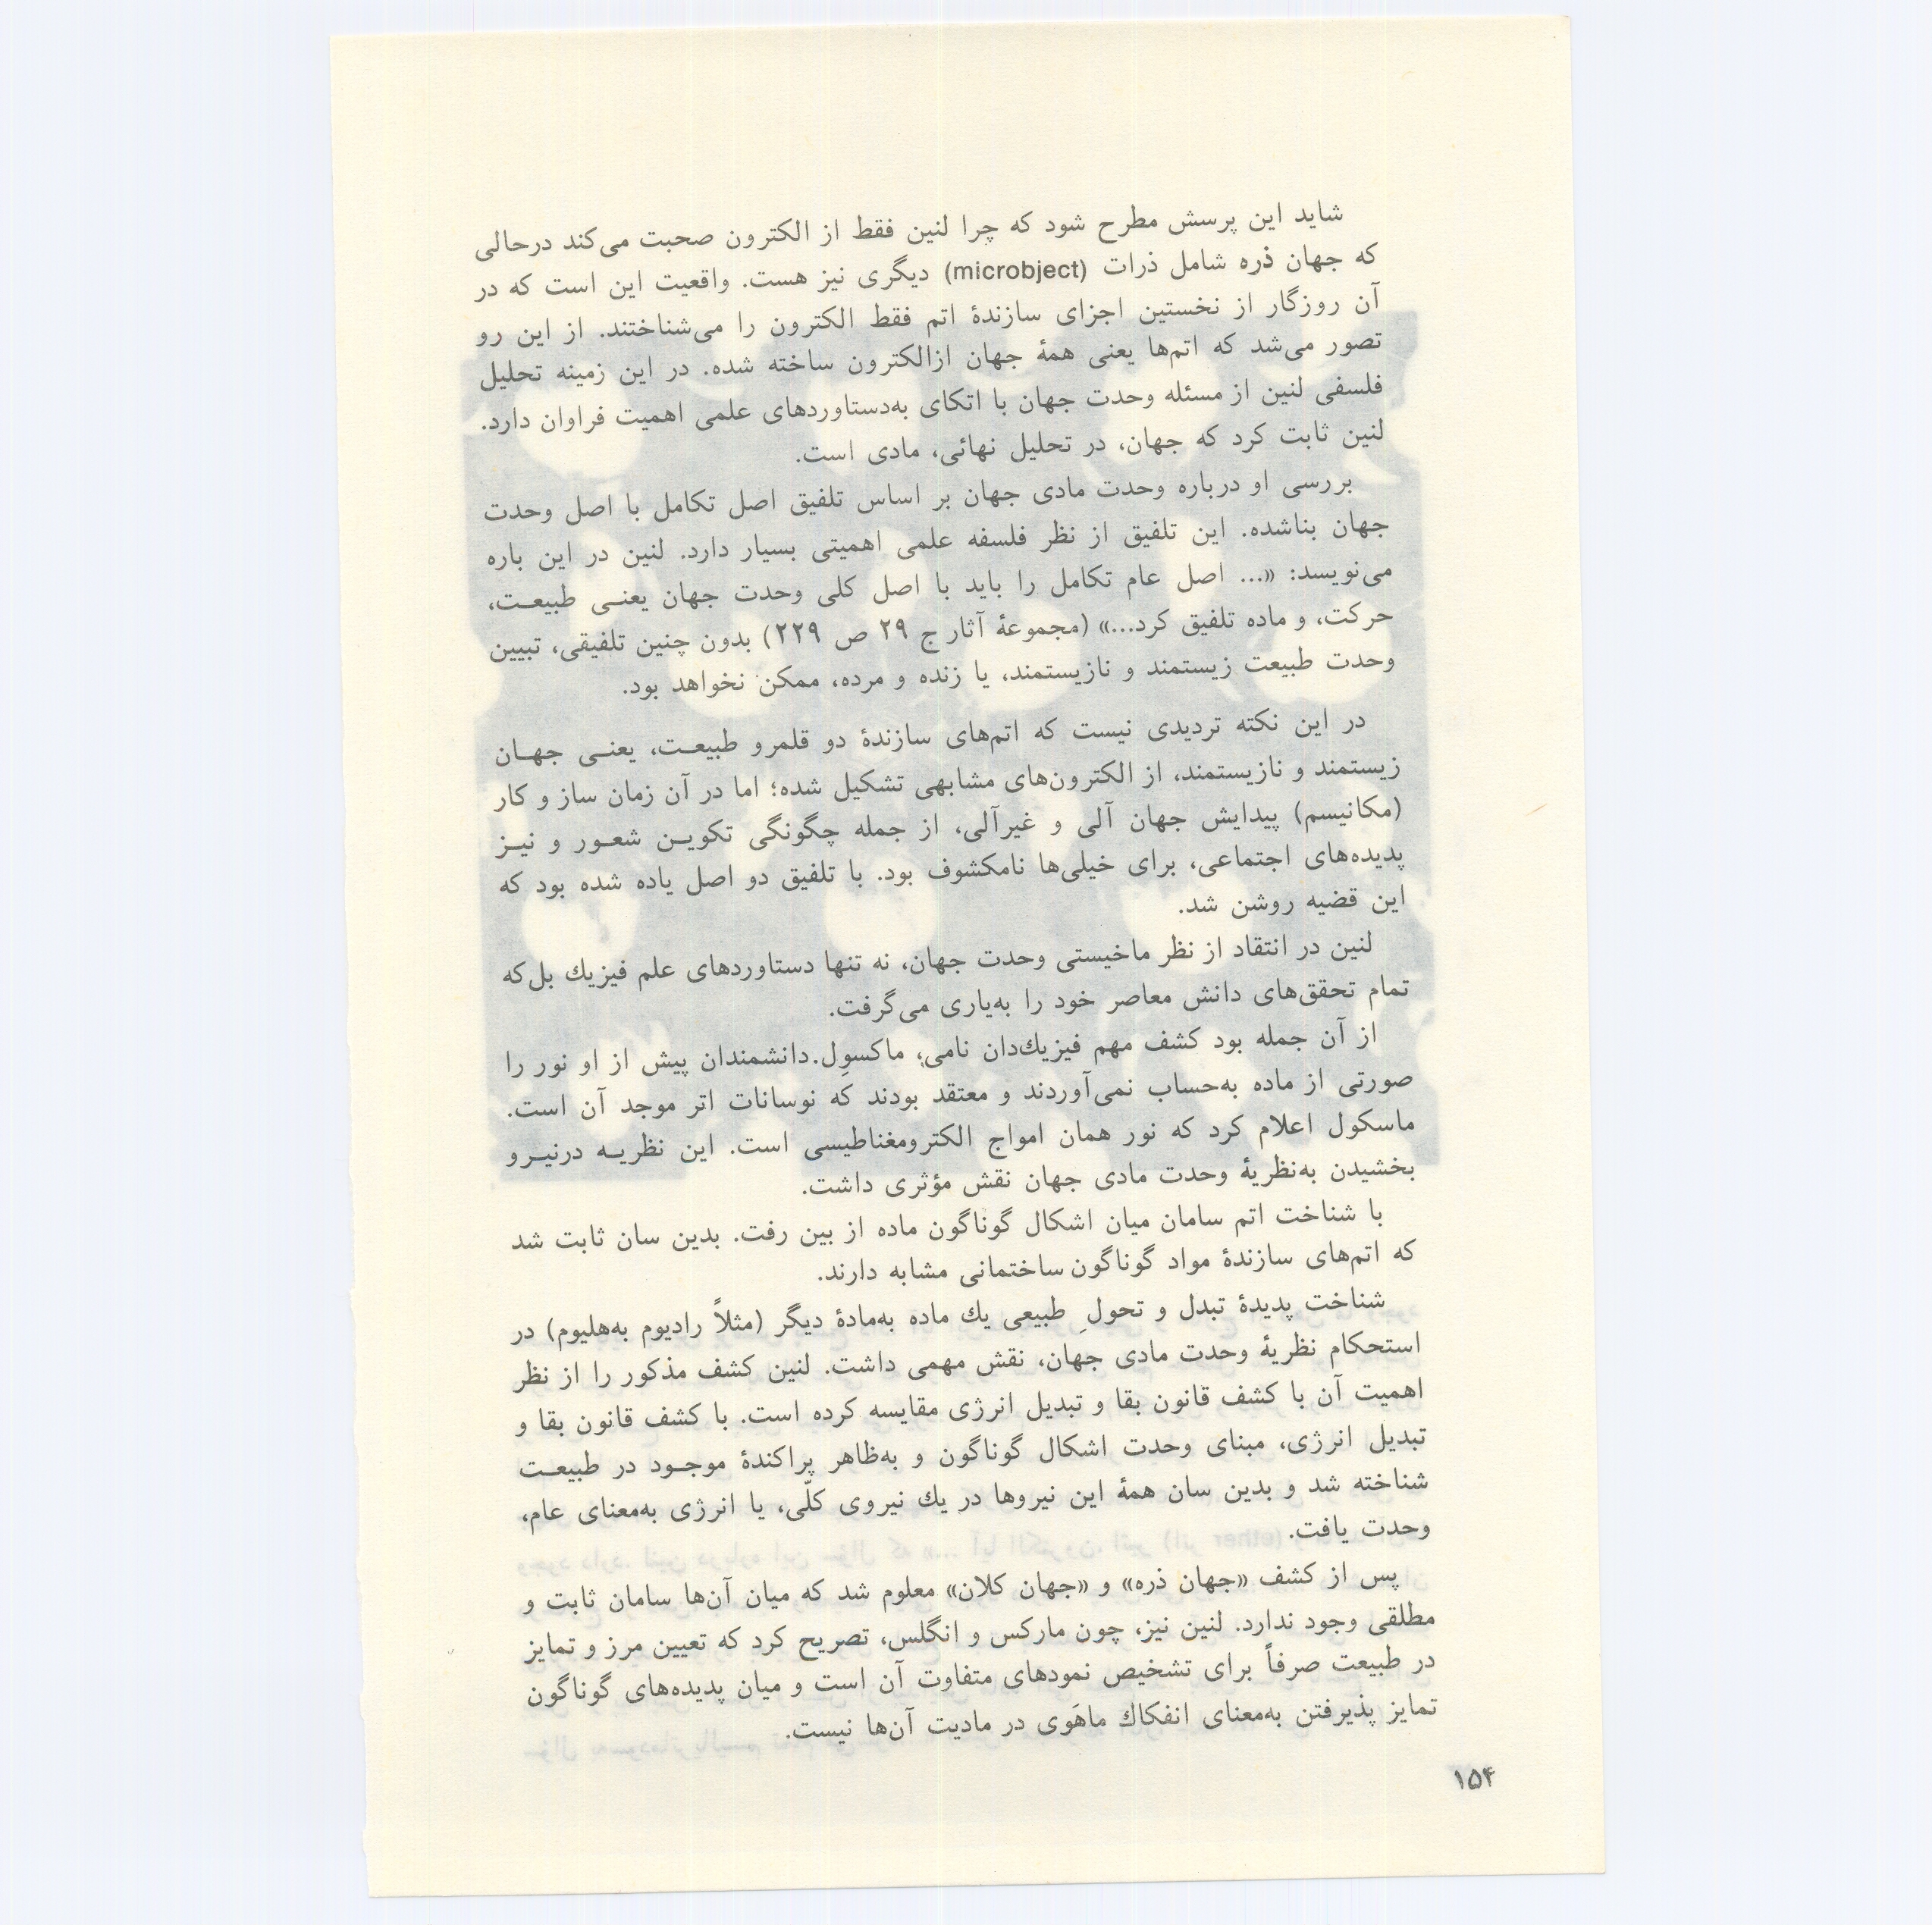 شاید این پرسش مطرح شود که چرا لنین فقط از الکترون صحبت می‌کند درحالی
که جهان ذره شامل ذرات (microbject) دیگری نیز هست. واقعیت این است که در
آن روزگار از نخستین اجزای سازندهٔ اتم فقط الکترون را می‌شناختند. از این رو
تصور می‌شد که اتم‌ها یعنی همهٔ جهان ازالکترون ساخته شده. در این زمینه تحلیل
فلسفی لنین از مسئله وحدت جهان با اتکای به‌دستاوردهای علمی اهمیت فراوان دارد.
لنین ثابت کرد که جهان، در تحلیل نهائی، مادی است.
بررسی او درباره وحدت مادی جهان بر اساس تلفیق اصل تکامل با اصل وحدت
جهان بناشده. این تلفیق از نظر فلسفه علمی اهمیتی بسیار دارد. لنین در این باره
می‌نویسد: «... اصل عام تکامل را باید با اصل کلی وحدت جهان یعنـی طبیعـت،
حرکت، و ماده تلفیق کرد...» (مجموعهٔ آثار ج ۲۹ ص ۲۲۹) بدون چنین تلفیقی، تبیین
وحدت طبیعت زیستمند و نازیستمند، یا زنده و مرده، ممکن نخواهد بود.
در این نکته تردیدی نیست که اتم‌های سازندهٔ دو قلمرو طبیعـت، یعنـی جهـان
زیستمند و نازیستمند، از الکترون‌های مشابهی تشکیل شده؛ اما در آن زمان ساز و کار
(مکانیسم) پیدایش جهان آلی و غیرآلی، از جمله چگونگی تکویـن شعـور و نیـز
پدیده‌های اجتماعی، برای خیلی‌ها نامکشوف بود. با تلفیق دو اصل یاده شده بود که
این قضیه روشن شد.
لنین در انتقاد از نظر ماخیستی وحدت جهان، نه تنها دستاوردهای علم فیزیك بل‌که
تمام تحقق‌های دانش معاصر خود را به‌یاری می‌گرفت.
از آن جمله بود کشف مهم فیزیك‌دان نامی، ماکسوِل. دانشمندان پیش از او نور را
صورتی از ماده به‌حساب نمی‌آوردند و معتقد بودند که نوسانات اتر موجد آن است.
ماسکول اعلام کرد که نور همان امواج الکترومغناطیسی است. این نظریـه درنیـرو
بخشیدن به‌نظریهٔ وحدت مادی جهان نقش مؤثری داشت.
با شناخت اتم سامان میان اشکال گوناگون ماده از بین رفت. بدین سان ثابت شد
که اتم‌های سازندهٔ مواد گوناگون ساختمانی مشابه دارند.
شناخت پدیدهٔ تبدل و تحولِ طبیعی یك ماده به‌مادهٔ دیگر (مثلاً رادیوم به‌هلیوم) در
استحکام نظریهٔ وحدت مادی جهان، نقش مهمی داشت. لنین کشف مذکور را از نظر
اهمیت آن با کشف قانون بقا و تبدیل انرژی مقایسه کرده است. با کشف قانون بقا و
تبدیل انرژی، مبنای وحدت اشکال گوناگون و به‌ظاهر پراکندهٔ موجـود در طبیعـت
شناخته شد و بدین سان همهٔ این نیروها در یك نیروی کلّی، یا انرژی به‌معنای عام،
وحدت یافت.
پس از کشف «جهان ذره» و «جهان کلان» معلوم شد که میان آن‌ها سامان ثابت و
مطلقی وجود ندارد. لنین نیز، چون مارکس و انگلس، تصریح کرد که تعیین مرز و تمایز
در طبیعت صرفاً برای تشخیص نمودهای متفاوت آن است و میان پدیده‌های گوناگون
تمایز پذیرفتن به‌معنای انفکاك ماهَوی در مادیت آن‌ها نیست.
۱۵۴